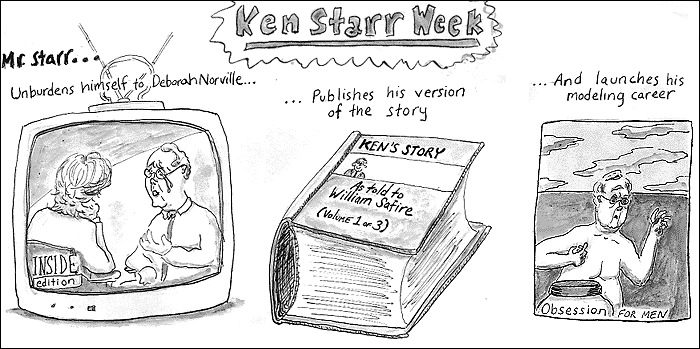 Ken Starr Week
Mr. Starr...
Unburdens himself to Deborah Norville...
INSIDE
edition
... Publishes his version
of the story
KEN'S STORY
As told to
William Safire
(Volume 1 of 3)
... And launches his
modeling career
Obsession FOR MEN